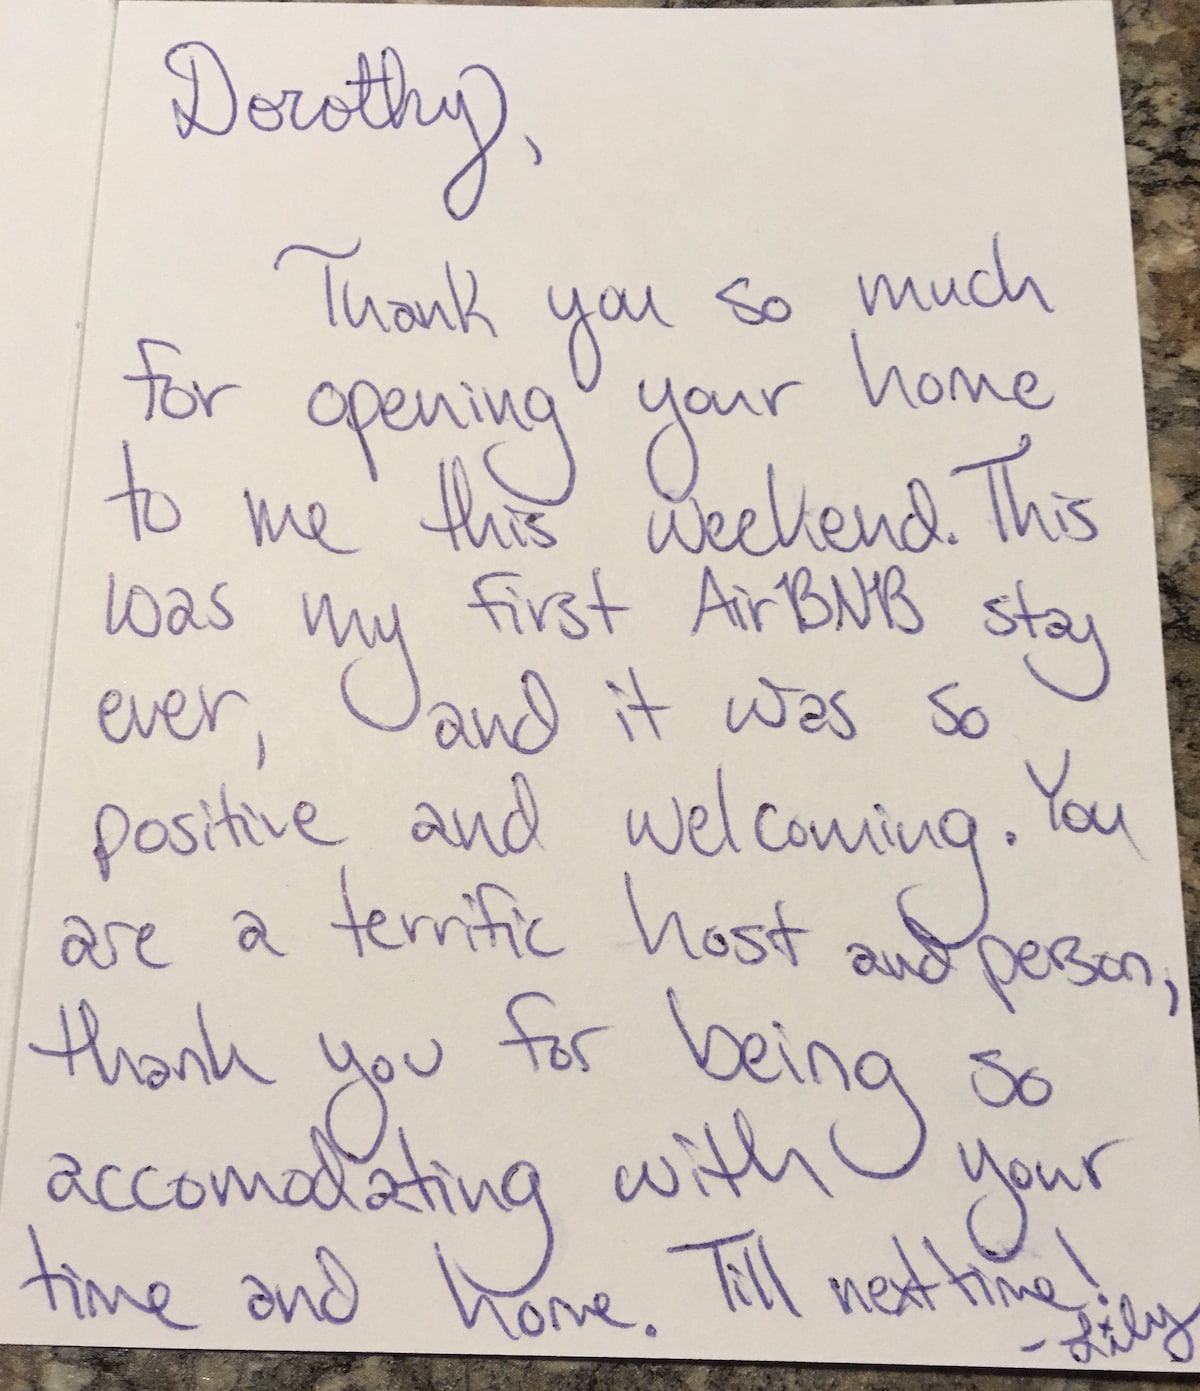 Dorothy,
Thank you so much
for opening your home
to me this weekend. This
was my first AirBNB stay
ever, and it was so
positive and welcoming. You
are a terrific host and person,
thank you for being so
accomodating with your
time and home. Till next time!
- Lily